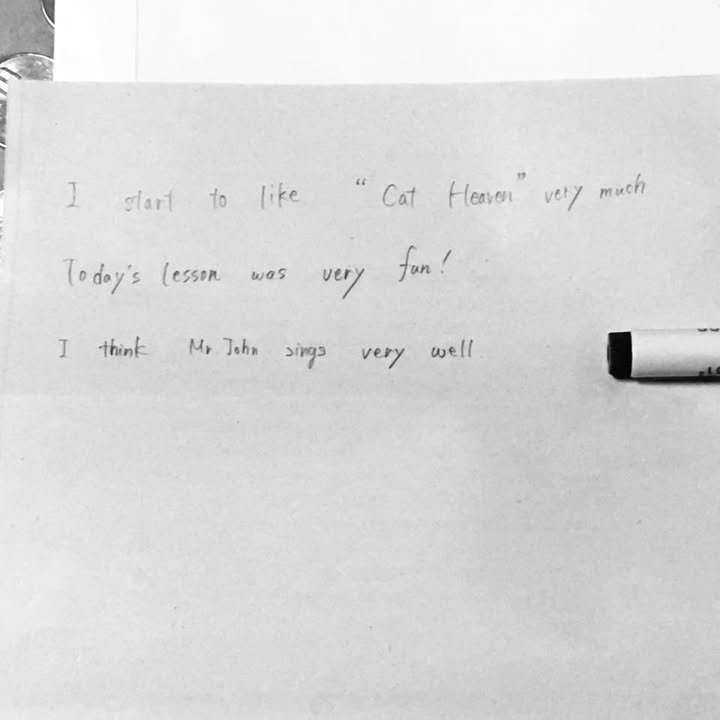 I start to like "Cat Heaven" very much
Today's lesson was very fun!
I think Mr John sings very well